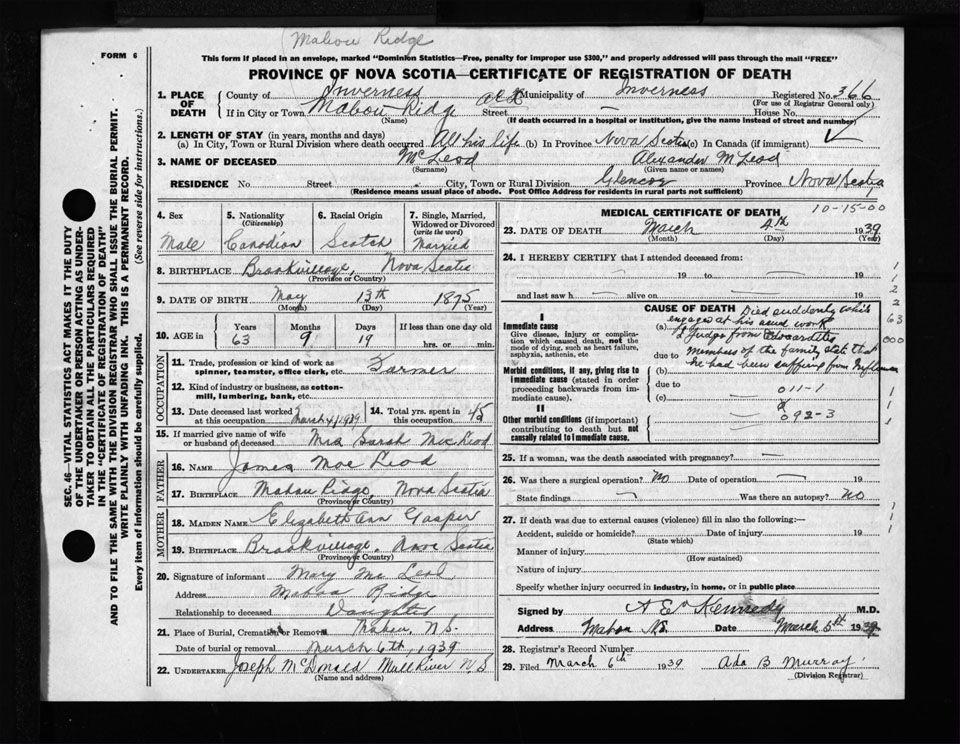 Mabou Ridge
FORM 6
This form if placed in an envelope, marked "Dominion Statistics—Free, penalty for improper use $300," and properly addressed will pass through the mail "FREE"
PROVINCE OF NOVA SCOTIA—CERTIFICATE OF REGISTRATION OF DEATH
1. PLACE OF DEATH
County of Inverness Municipality of Inverness Registered No. 366
(For use of Registrar General only)
If in City or Town Mabou Ridge Street — House No.
(Name) (If death occurred in a hospital or institution, give the name instead of street and number)
2. LENGTH OF STAY (in years, months and days)
(a) In City, Town or Rural Division where death occurred All his life (b) In Province Nova Scotia (c) In Canada (if immigrant)
3. NAME OF DECEASED McLeod Alexander McLeod
(Surname) (Given name or names)
RESIDENCE No. Street City, Town or Rural Division Glencoe Province Nova Scotia
(Residence means usual place of abode. Post Office Address for residents in rural parts not sufficient)
SEC. 46—VITAL STATISTICS ACT MAKES IT THE DUTY
OF THE UNDERTAKER OR PERSON ACTING AS UNDER-
TAKER TO OBTAIN ALL THE PARTICULARS REQUIRED
IN THE "CERTIFICATE OF REGISTRATION OF DEATH"
AND TO FILE THE SAME WITH THE DIVISION REGISTRAR WHO SHALL ISSUE THE BURIAL PERMIT.
WRITE PLAINLY WITH UNFADING INK. THIS IS A PERMANENT RECORD.
Every item of information should be carefully supplied. (See reverse side for instructions.)
4. Sex 5. Nationality (Citizenship) 6. Racial Origin 7. Single, Married, Widowed or Divorced (write the word)
Male Canadian Scotch Married
8. BIRTHPLACE Brookvillage, Nova Scotia
(Province or Country)
9. DATE OF BIRTH May 13th 1875
(Month) (Day) (Year)
10. AGE in Years Months Days If less than one day old
63 9 19 hrs. or min.
OCCUPATION
11. Trade, profession or kind of work as spinner, teamster, office clerk, etc. Farmer
12. Kind of industry or business, as cotton-mill, lumbering, bank, etc.
13. Date deceased last worked at this occupation March 4/1939 14. Total yrs. spent in this occupation 45
15. If married give name of wife or husband of deceased Mrs Sarah MacLeod
FATHER
16. NAME James Mac Leod
17. BIRTHPLACE Mabou Ridge, Nova Scotia
(Province or Country)
MOTHER
18. MAIDEN NAME Elizabeth Ann Gasper
19. BIRTHPLACE Brookvillage, Nova Scotia
(Province or Country)
20. Signature of informant Mary Mc Leod
Address Mabou Ridge
Relationship to deceased Daughter
21. Place of Burial, Cremation or Removal Mabou, N.S.
Date of burial or removal March 6th, 1939
22. UNDERTAKER Joseph McDonald Mull River N.S
(Name and address)
MEDICAL CERTIFICATE OF DEATH 10-15-00
23. DATE OF DEATH March 4th 1939
(Month) (Day) (Year)
24. I HEREBY CERTIFY that I attended deceased from:
— 19 to — 19
and last saw h — alive on — 19
CAUSE OF DEATH
I
Immediate cause
Give disease, injury or complication which caused death, not the mode of dying, such as heart failure, asphyxia, asthenia, etc
Morbid conditions, if any, giving rise to immediate cause (stated in order proceeding backwards from immediate cause).
II
Other morbid conditions (if important) contributing to death but not causally related to immediate cause.
(a) Died suddenly while
engaged at his work
I judge from
due to Members of the family state that
(b) he had been suffering from Influenza
due to
(c) — 011-1
092-3
1
1
2
2
63
000
1
1
1
1
1
1
25. If a woman, was the death associated with pregnancy? —
26. Was there a surgical operation? No Date of operation — 19
State findings — Was there an autopsy? No
27. If death was due to external causes (violence) fill in also the following:—
Accident, suicide or homicide? Date of injury 19
(State which)
Manner of injury
(How sustained)
Nature of injury
Specify whether injury occurred in industry, in home, or in public place
Signed by A E Kennedy M.D.
Address Mabou N.S. Date March 5th 1939
28. Registrar's Record Number
29. Filed March 6th 1939 Ada B Murray
(Division Registrar)